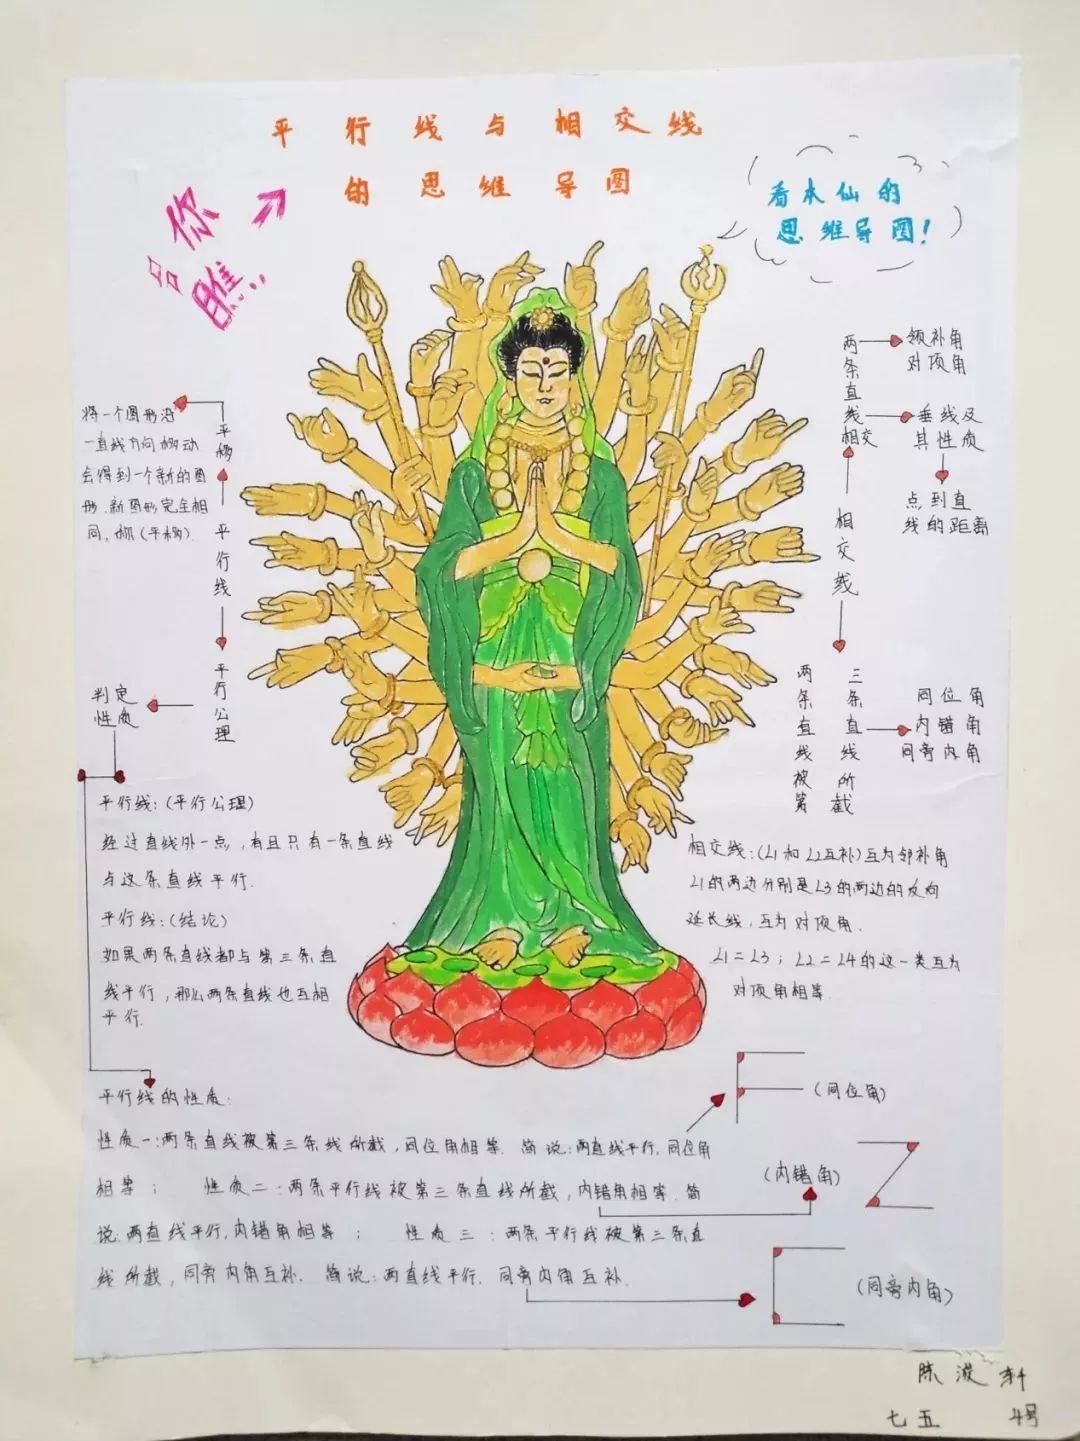 平行线与相交线
的思维导图
你
瞧
看本仙的
思维导图!
将一个图形沿
一直线方向移动
会得到一个新的图
形.新图形完全相
同,称(平移).
平移
平行线
平行公理
判定
性质
平行线:(平行公理)
经过直线外一点,有且只有一条直线
与这条直线平行.
平行线:(结论)
如果两条直线都与第三条直
线平行,那么两条直线也互相
平行.
两条直线相交
领补角
对顶角
垂线及
其性质
点到直
线的距离
相交线
两条直线被第
三条直线所截
同位角
内错角
同旁内角
相交线:(∠1和∠2互补)互为邻补角
∠1的两边分别是∠3的两边的反向
延长线,互为对顶角.
∠1=∠3;∠2=∠4的这一类互为
对顶角相等.
平行线的性质:
性质一:两条直线被第三条线所截,同位角相等.简说:两直线平行.同位角
相等; 性质二:两条平行线被第三条直线所截,内错角相等.简
说:两直线平行,内错角相等; 性质三:两条平行线被第三条直
线所截,同旁内角互补.简说:两直线平行.同旁内角互补.
(同位角)
(内错角)
(同旁内角)
陈 轩
七五 4号